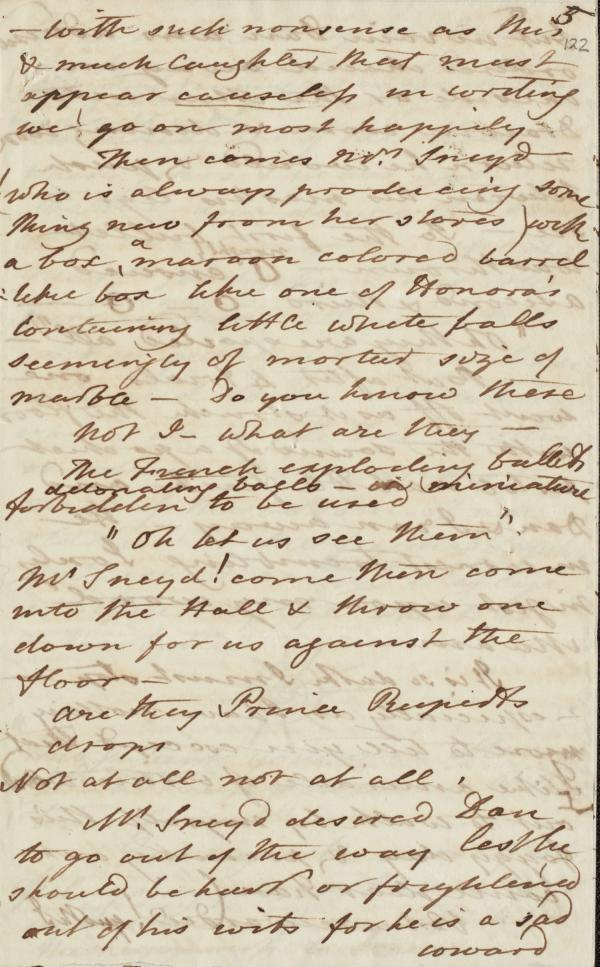 5
122
— with such nonsense as this
& much laughter that must
appear causeless in writing
we go on most happily
Then comes Mrs. Sneyd
(who is always producing some
thing new from her stores) with
a box, a maroon colored barrel
like box like one of Honora's
containing little white balls
seemingly of mortar size of
marble — Do you know these
Not I — what are they —
The French exploding bullets
detonating balls — in miniature
forbidden to be used
"Oh let us see them".
Mr Sneyd! come then come
into the Hall & throw one
down for us against the
floor —
are they Prince Ruperts
drops
Not at all not at all.
Mr. Sneyd desired Dan
to go out of the way lest he
should be hurt or frightened
out of his wits for he is a sad
coward